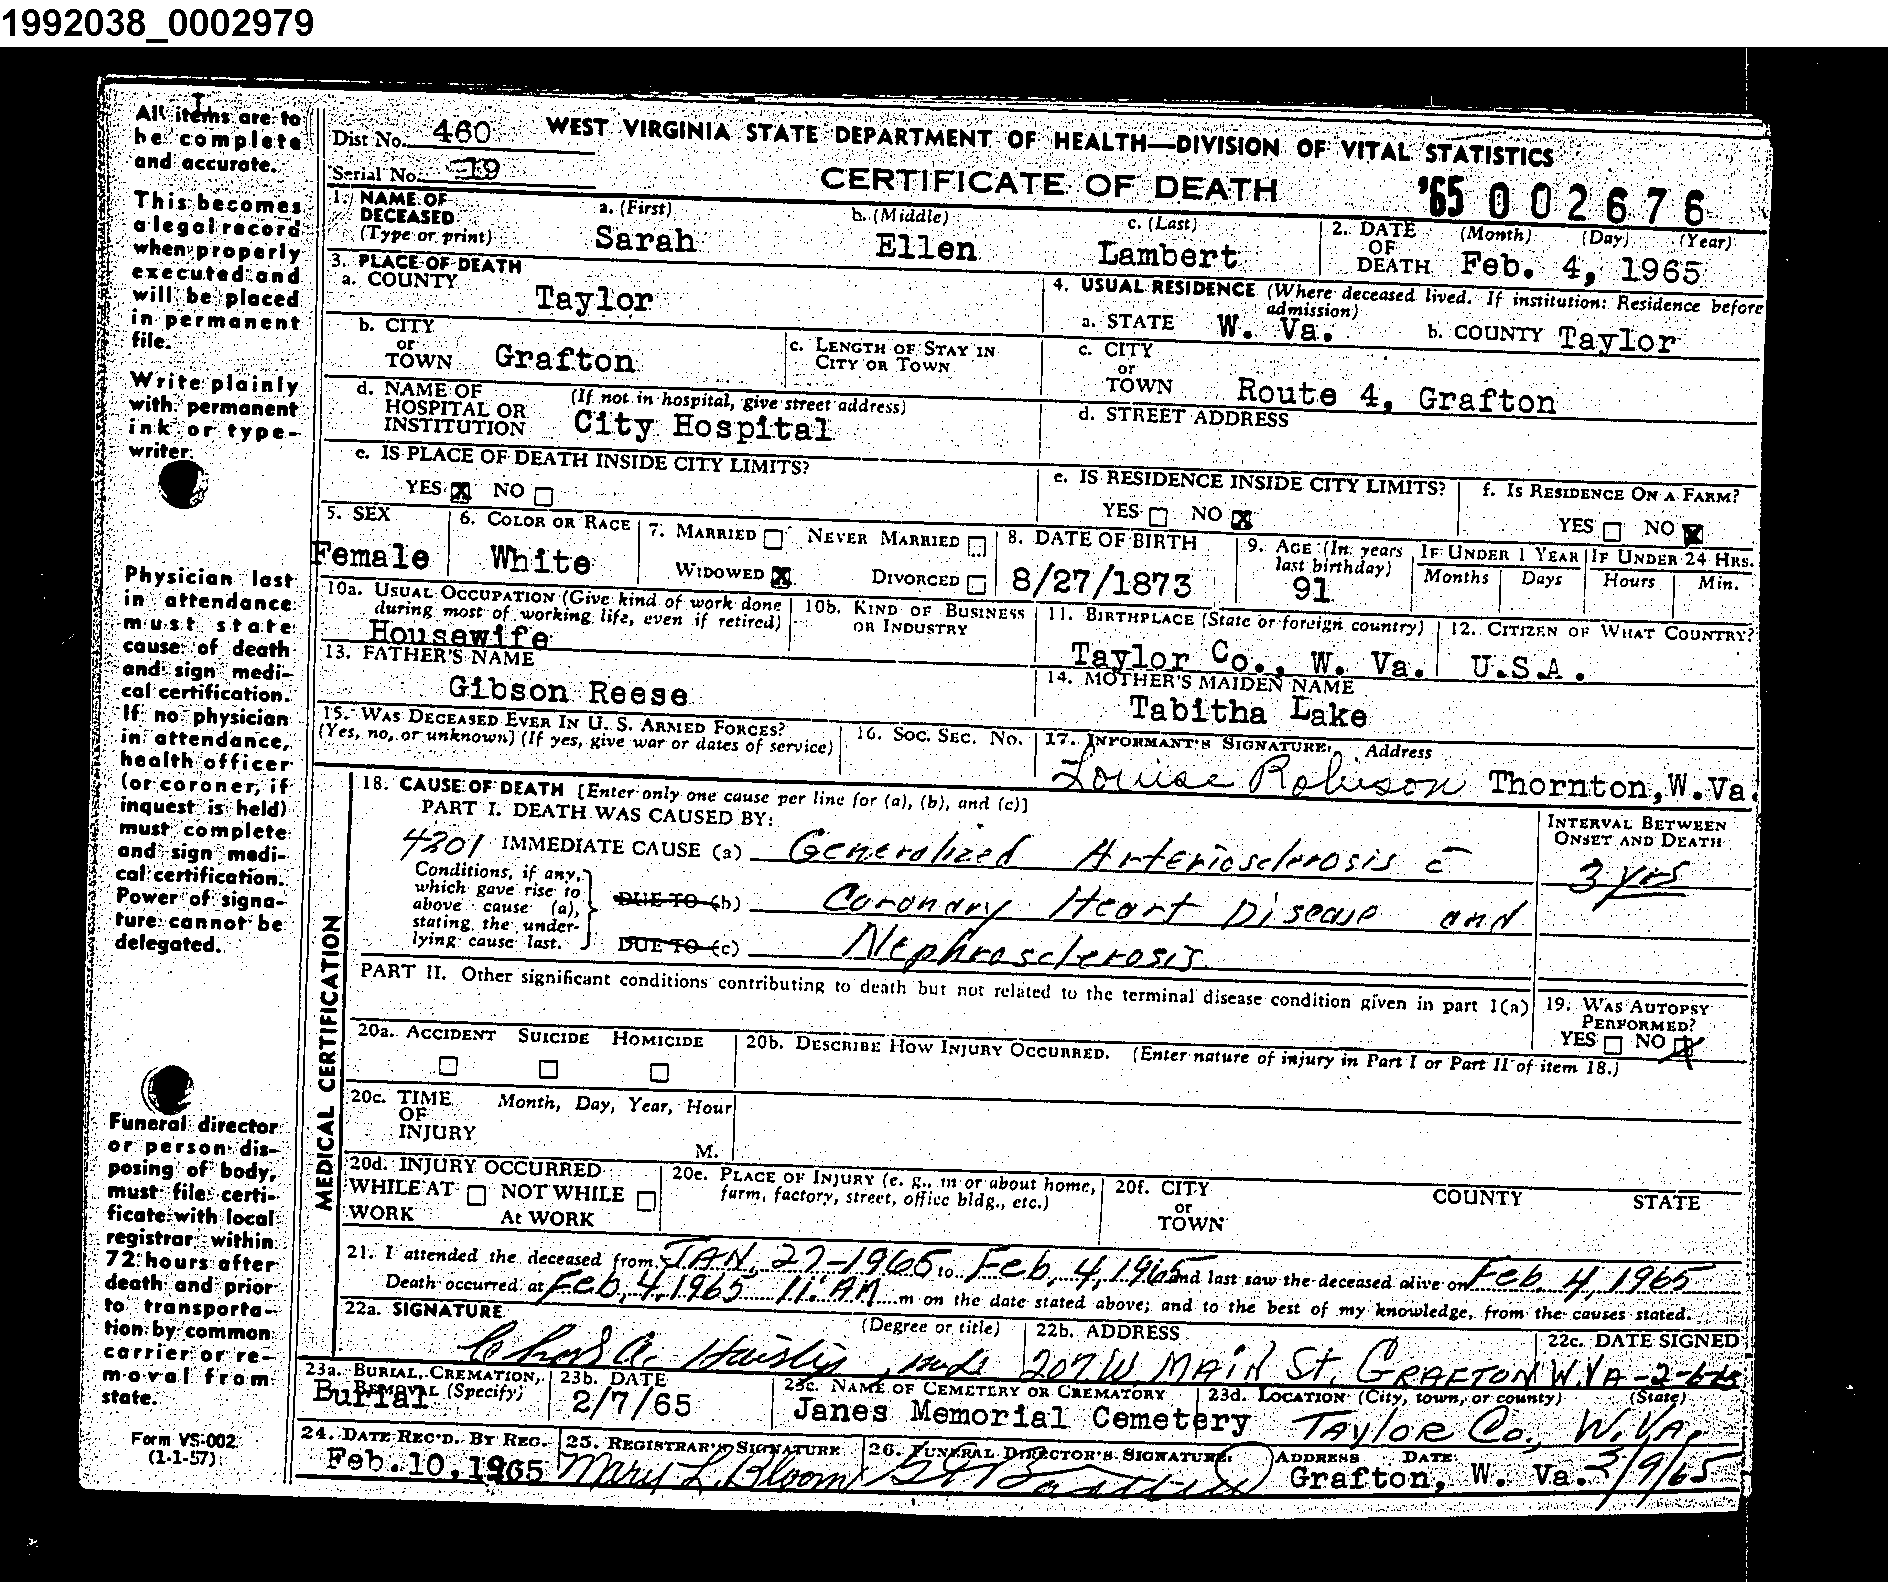 1992038_0002979
All items are to
be complete
and accurate.
This becomes
a legal record
when properly
executed and
will be placed
in permanent
file.
Write plainly
with permanent
ink or type-
writer.
Physician last
in attendance
must state
cause of death
and sign medi-
cal certification.
If no physician
in attendance,
health officer
(or coroner, if
inquest is held)
must complete
and sign medi-
cal certification.
Power of signa-
ture cannot be
delegated.
Funeral director
or person dis-
posing of body,
must file certi-
ficate with local
registrar within
72 hours after
death and prior
to transporta-
tion by common
carrier or re-
moval from
state.
Form VS-002
(1-1-57)
Dist No. 460 WEST VIRGINIA STATE DEPARTMENT OF HEALTH—DIVISION OF VITAL STATISTICS
Serial No. 19 CERTIFICATE OF DEATH '65 002676
1. NAME OF DECEASED (Type or print) a. (First) Sarah b. (Middle) Ellen c. (Last) Lambert
2. DATE OF DEATH (Month) (Day) (Year) Feb. 4, 1965
3. PLACE OF DEATH
a. COUNTY Taylor
b. CITY or TOWN Grafton
c. LENGTH OF STAY IN CITY OR TOWN
d. NAME OF HOSPITAL OR INSTITUTION (If not in hospital, give street address) City Hospital
e. IS PLACE OF DEATH INSIDE CITY LIMITS?
YES X NO
4. USUAL RESIDENCE (Where deceased lived. If institution: Residence before admission)
a. STATE W. Va. b. COUNTY Taylor
c. CITY or TOWN Route 4, Grafton
d. STREET ADDRESS
e. IS RESIDENCE INSIDE CITY LIMITS?
YES NO X
f. IS RESIDENCE ON A FARM?
YES NO X
5. SEX Female
6. COLOR OR RACE White
7. MARRIED NEVER MARRIED
WIDOWED X DIVORCED
8. DATE OF BIRTH 8/27/1873
9. AGE (In years last birthday) 91
IF UNDER 1 YEAR Months Days
IF UNDER 24 HRS. Hours Min.
10a. USUAL OCCUPATION (Give kind of work done during most of working life, even if retired) Housewife
10b. KIND OF BUSINESS OR INDUSTRY
11. BIRTHPLACE (State or foreign country) Taylor Co., W. Va.
12. CITIZEN OF WHAT COUNTRY? U.S.A.
13. FATHER'S NAME Gibson Reese
14. MOTHER'S MAIDEN NAME Tabitha Lake
15. WAS DECEASED EVER IN U. S. ARMED FORCES?
(Yes, no, or unknown) (If yes, give war or dates of service)
16. SOC. SEC. No.
17. INFORMANT'S SIGNATURE Address
Louise Robinson Thornton, W. Va.
MEDICAL CERTIFICATION
18. CAUSE OF DEATH [Enter only one cause per line for (a), (b), and (c)]
PART I. DEATH WAS CAUSED BY:
4201 IMMEDIATE CAUSE (a) Generalized Arteriosclerosis c̄
Conditions, if any, which gave rise to above cause (a), stating the underlying cause last.
DUE TO (b) Coronary Heart Disease and
DUE TO (c) Nephrosclerosis
INTERVAL BETWEEN ONSET AND DEATH
3 yrs
PART II. Other significant conditions contributing to death but not related to the terminal disease condition given in part I(a)
19. WAS AUTOPSY PERFORMED?
YES NO X
20a. ACCIDENT SUICIDE HOMICIDE
20b. DESCRIBE HOW INJURY OCCURRED. (Enter nature of injury in Part I or Part II of item 18.)
20c. TIME OF INJURY Month, Day, Year, Hour
M.
20d. INJURY OCCURRED
WHILE AT WORK NOT WHILE At WORK
20e. PLACE OF INJURY (e. g., in or about home, farm, factory, street, office bldg., etc.)
20f. CITY or TOWN COUNTY STATE
21. I attended the deceased from JAN, 27-1965 to Feb, 4, 1965 and last saw the deceased alive on Feb. 4, 1965
Death occurred at Feb, 4, 1965 11: AM m on the date stated above; and to the best of my knowledge, from the causes stated.
22a. SIGNATURE (Degree or title) A. Haislip
22b. ADDRESS 207 W. MAIN St, GRAFTON W.VA
22c. DATE SIGNED
23a. BURIAL, CREMATION, REMOVAL (Specify) Burial
23b. DATE 2/7/65
23c. NAME OF CEMETERY OR CREMATORY Janes Memorial Cemetery
23d. LOCATION (City, town, or county) (State) Taylor Co., W.VA.
24. DATE REC'D. BY REG. Feb. 10, 1965
25. REGISTRAR'S SIGNATURE Mary L. Bloom
26. FUNERAL DIRECTOR'S SIGNATURE ADDRESS DATE
Grafton, W. Va. /9/65